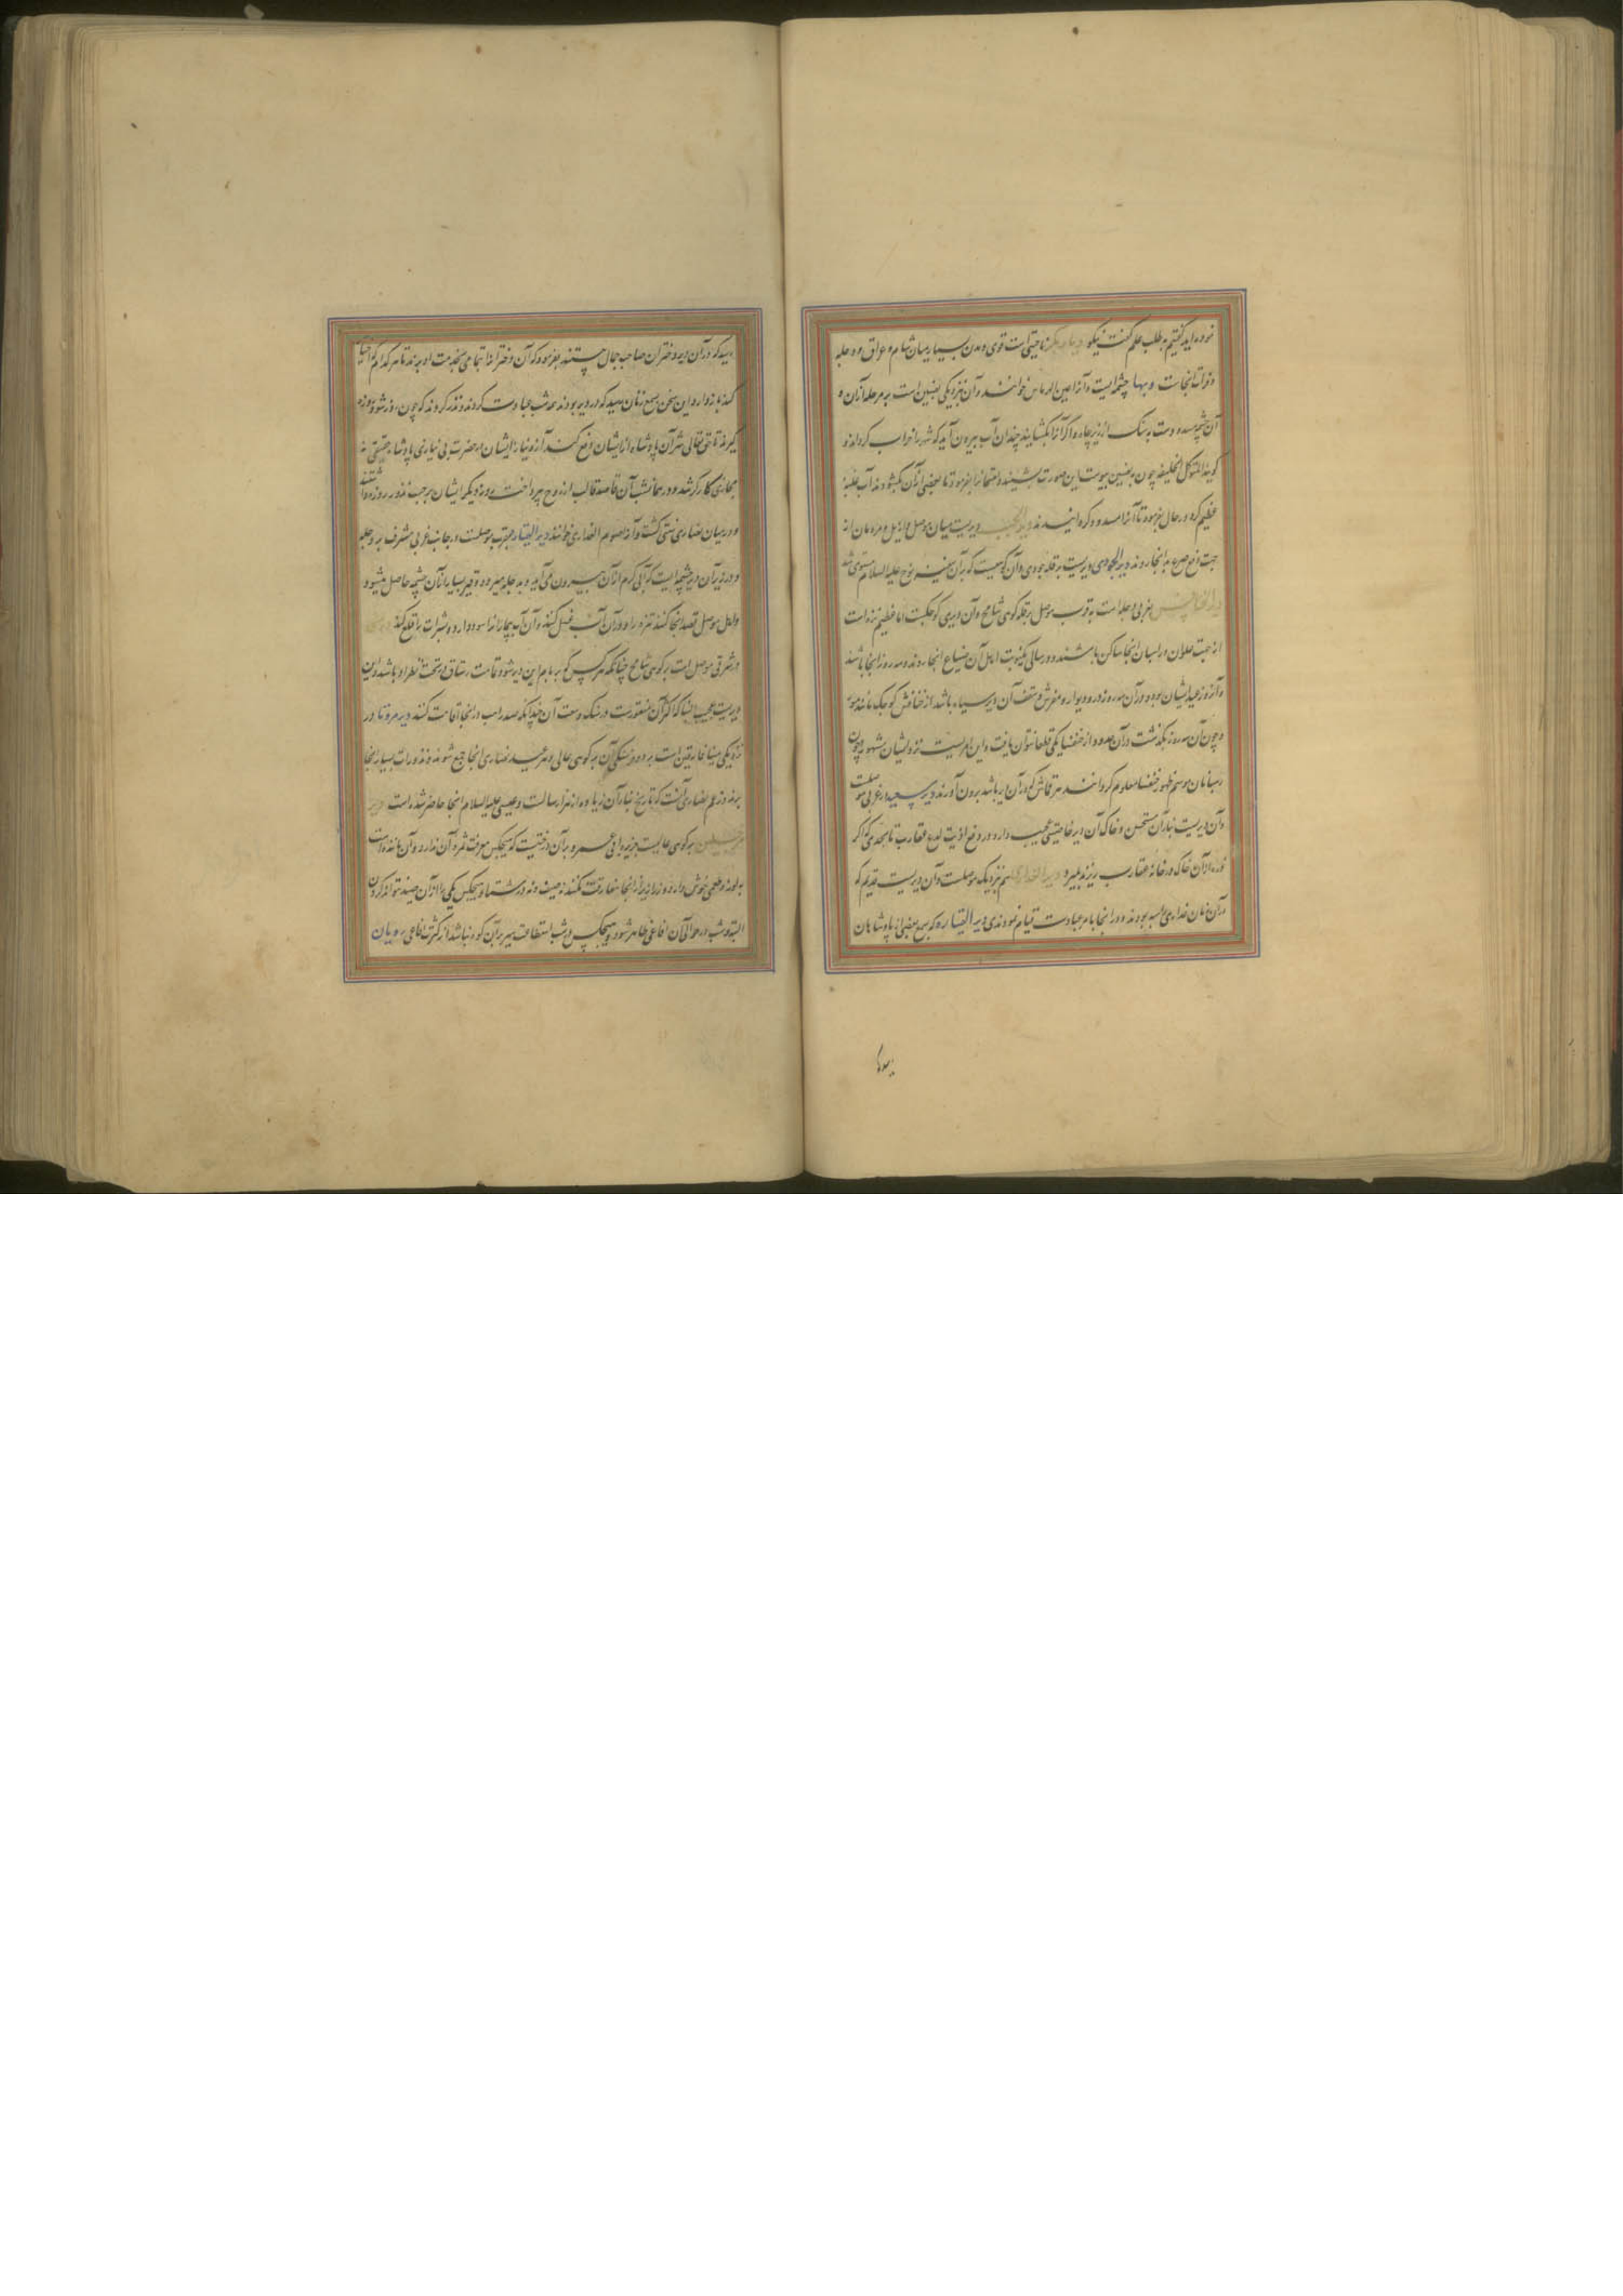 نموده‌اید گفتیم بطلب علم گفت نیکو دیار بکر ناحیتی‌ست قوی و مدن بسیار میان شام و عراق و دجله
و فرات آنجاست و بها چشمه‌ایست و آنرا عین الهرماس خوانند و آن نزدیکی نصیبین است بر مرحله ازان و
آن چشمه مسدودست بسنک ارزیز چاره و اکر آنرا بکشایند چندان آب بیرون آید که شهر را خراب کرداند و
کویند المتوکل الخلیفه چون بنصیبین پیوست این صورت بشنید و امتحانرا بفرمود تا بعضی ازان بکشودند آب غلبهٔ
عظیم کرد در حال بفرمود تا آنرا مسدود کردانیدند دیر الجب دیریست میان موصل و اربل و مردمان از
جهت دفع صرع بدانجا روند دیر الجودی دیریست بر قله جودی و آن کوهیست که برآن سفینه نوح علیه السلام مستوی شد
دیر الخنافس بغربی دجله است بقرب موصل بر قله کوهی شامخ و آن دیری کوچکست اما عظیم نزه است
از جهت علوان و راهبان آنجا ساکن باشند و در سالی یک نوبت اهل آن ضیاع آنجا روند و سه روز آنجا باشند
و آنروز عید ایشان بود و در آن سه روز در و دیوار و مفرش و سقف آن دیر سیاه باشد از خنافس کوچک مانند مور
و چون آن سه روز بکذشت در آن حدود از خنفسا یکی قطعا نتوان یافت و این امریست نزد ایشان مشهور و چون
رهبانان موسم ظهور خنفسا معلوم کردانند هر قماش که در آن دیر باشد برون آورند دیر سعید در غربی موصلست
و آن دیریست بنا آن مستحسن و خاک آن دیر خاصیتی عجیب دارد در دفع اذیت لدغ عقارب تا بحدی که اکر
ذره ازان خاک در خانه عقارب ریزند بمیرد دیر العذاری هم نزدیک موصلست و آن دیریست قدیم که
درآن زنان عذاری راهبه بودند و در آنجا بامر عبادت قیام نمودندی دیر القیاره که بسمع بعضی از پادشاهان
رسید که در آن دیر دختران صاحب جمال هستند بفرمود که آن دختران را تمامی بخدمت او برند تا هر کدام که اختیار
کند باز دارد و این سخن بسمع زنان رسید که در دیر بودند همه شب عبادت کردند و نذر کردند که چون روز شود روزه
کیرند تا حق تعالی شر آن پادشاه از ایشان دفع کند آن روز نیاز ایشان بحضرت بی نیازی پادشاه حقیقی نه
مجازی کارکر شد و در همانشب آن قاصد قالب از روح بپرداخت روز دیکر ایشان بموجب نذور روزه داشتند
و در میان نصاری سنتی کشت و آنرا صوم العذاری خوانند دیر القیاره بقرب موصلست در جانب غربی مشرف بر دجله
و در زیر آن دیر چشمه‌ایست که آبی کرم ازان بیرون می‌آید و به دجله میرود و قیر بسیار ازان چشمه حاصل میشود
و اهل موصل قصد آنجا کنند تنزه را و در آن آب غسل کنند و آن آب بیمارانرا سود دارد و بثرات را قلع کند
در شرقی موصل است بر کوهی شامخ چنانکه هر کس که بر بام این دیر شود تمامت رستاق در تحت نظر او باشد و این
دیریست عجیب البنا که اکثر آن منقورست در سنک و سعت آن چندانکه صد راهب در آنجا اقامت کنند دیر مرتوما در
نزدیکی میافارقین است بر دو فرسنکی آن بر کوهی عالی و هر عید نصاری آنجا جمع شوند و نذورات بسیار آنجا
برند و زعم نصاری آنست که تاریخ بنا آن زیاده از هزار سالست و عیسی علیه السلام آنجا حاضر شده است
بر کوهی عالیست جزیره ابن عمر و بر آن درختیست که هیچکس معرفت ثمره آن ندارد و آن مانند
به لوز و طعمی خوش دارد و زرازیر از آنجا مفارقت نکنند نه صیف و نه در شتا و هیچکس یکی را ازان صید نتواند کردن
البته و شب در حوالی آن افاعی ظاهر شود و هیچکس در شب استطاعت سیر بر آن کوه نباشد از کثرت افاعی رویان